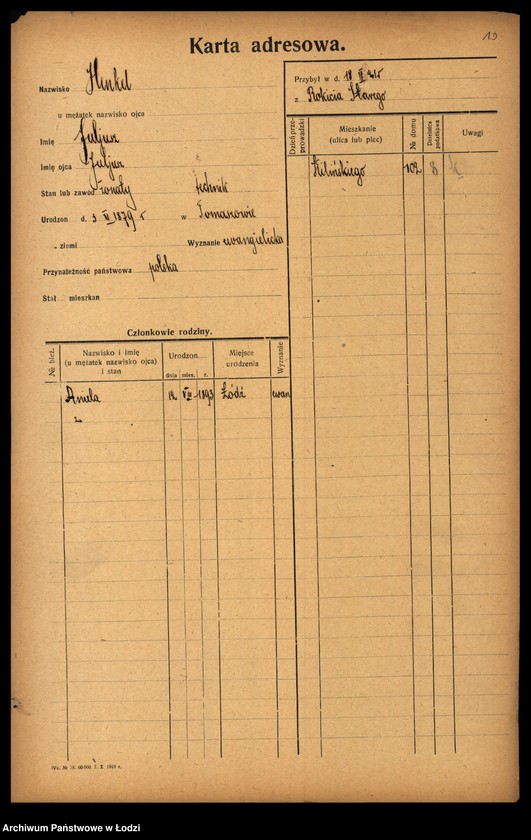 19
Karta adresowa.
Nazwisko Henkel
u mężatek nazwisko ojca
Imię Juljusz
Imię ojca Juljusz
Stan lub zawód żonaty technik
Urodzon d. 3 1879 r w Tomaszowie
„ ziemi Wyznanie ewangielicka
Przynależność państwowa polska
Stał mieszkan
Przybył w d. 18
z Rokicia Starego
Dzień przeprowadzki
Mieszkanie
(ulica lub plec)
№ domu
Dzielnica podatkowa
Uwagi
Kilińskiego 102 8
Członkowie rodziny.
№ bież.
Nazwisko i imię
(u mężatek nazwisko ojca)
i stan
Urodzon
dnia mies. r.
Miejsce
urodzenia
Wyznanie
Aniela 12 VIII 1893 Łódź ewan
ż
Archiwum Państwowe w Łodzi